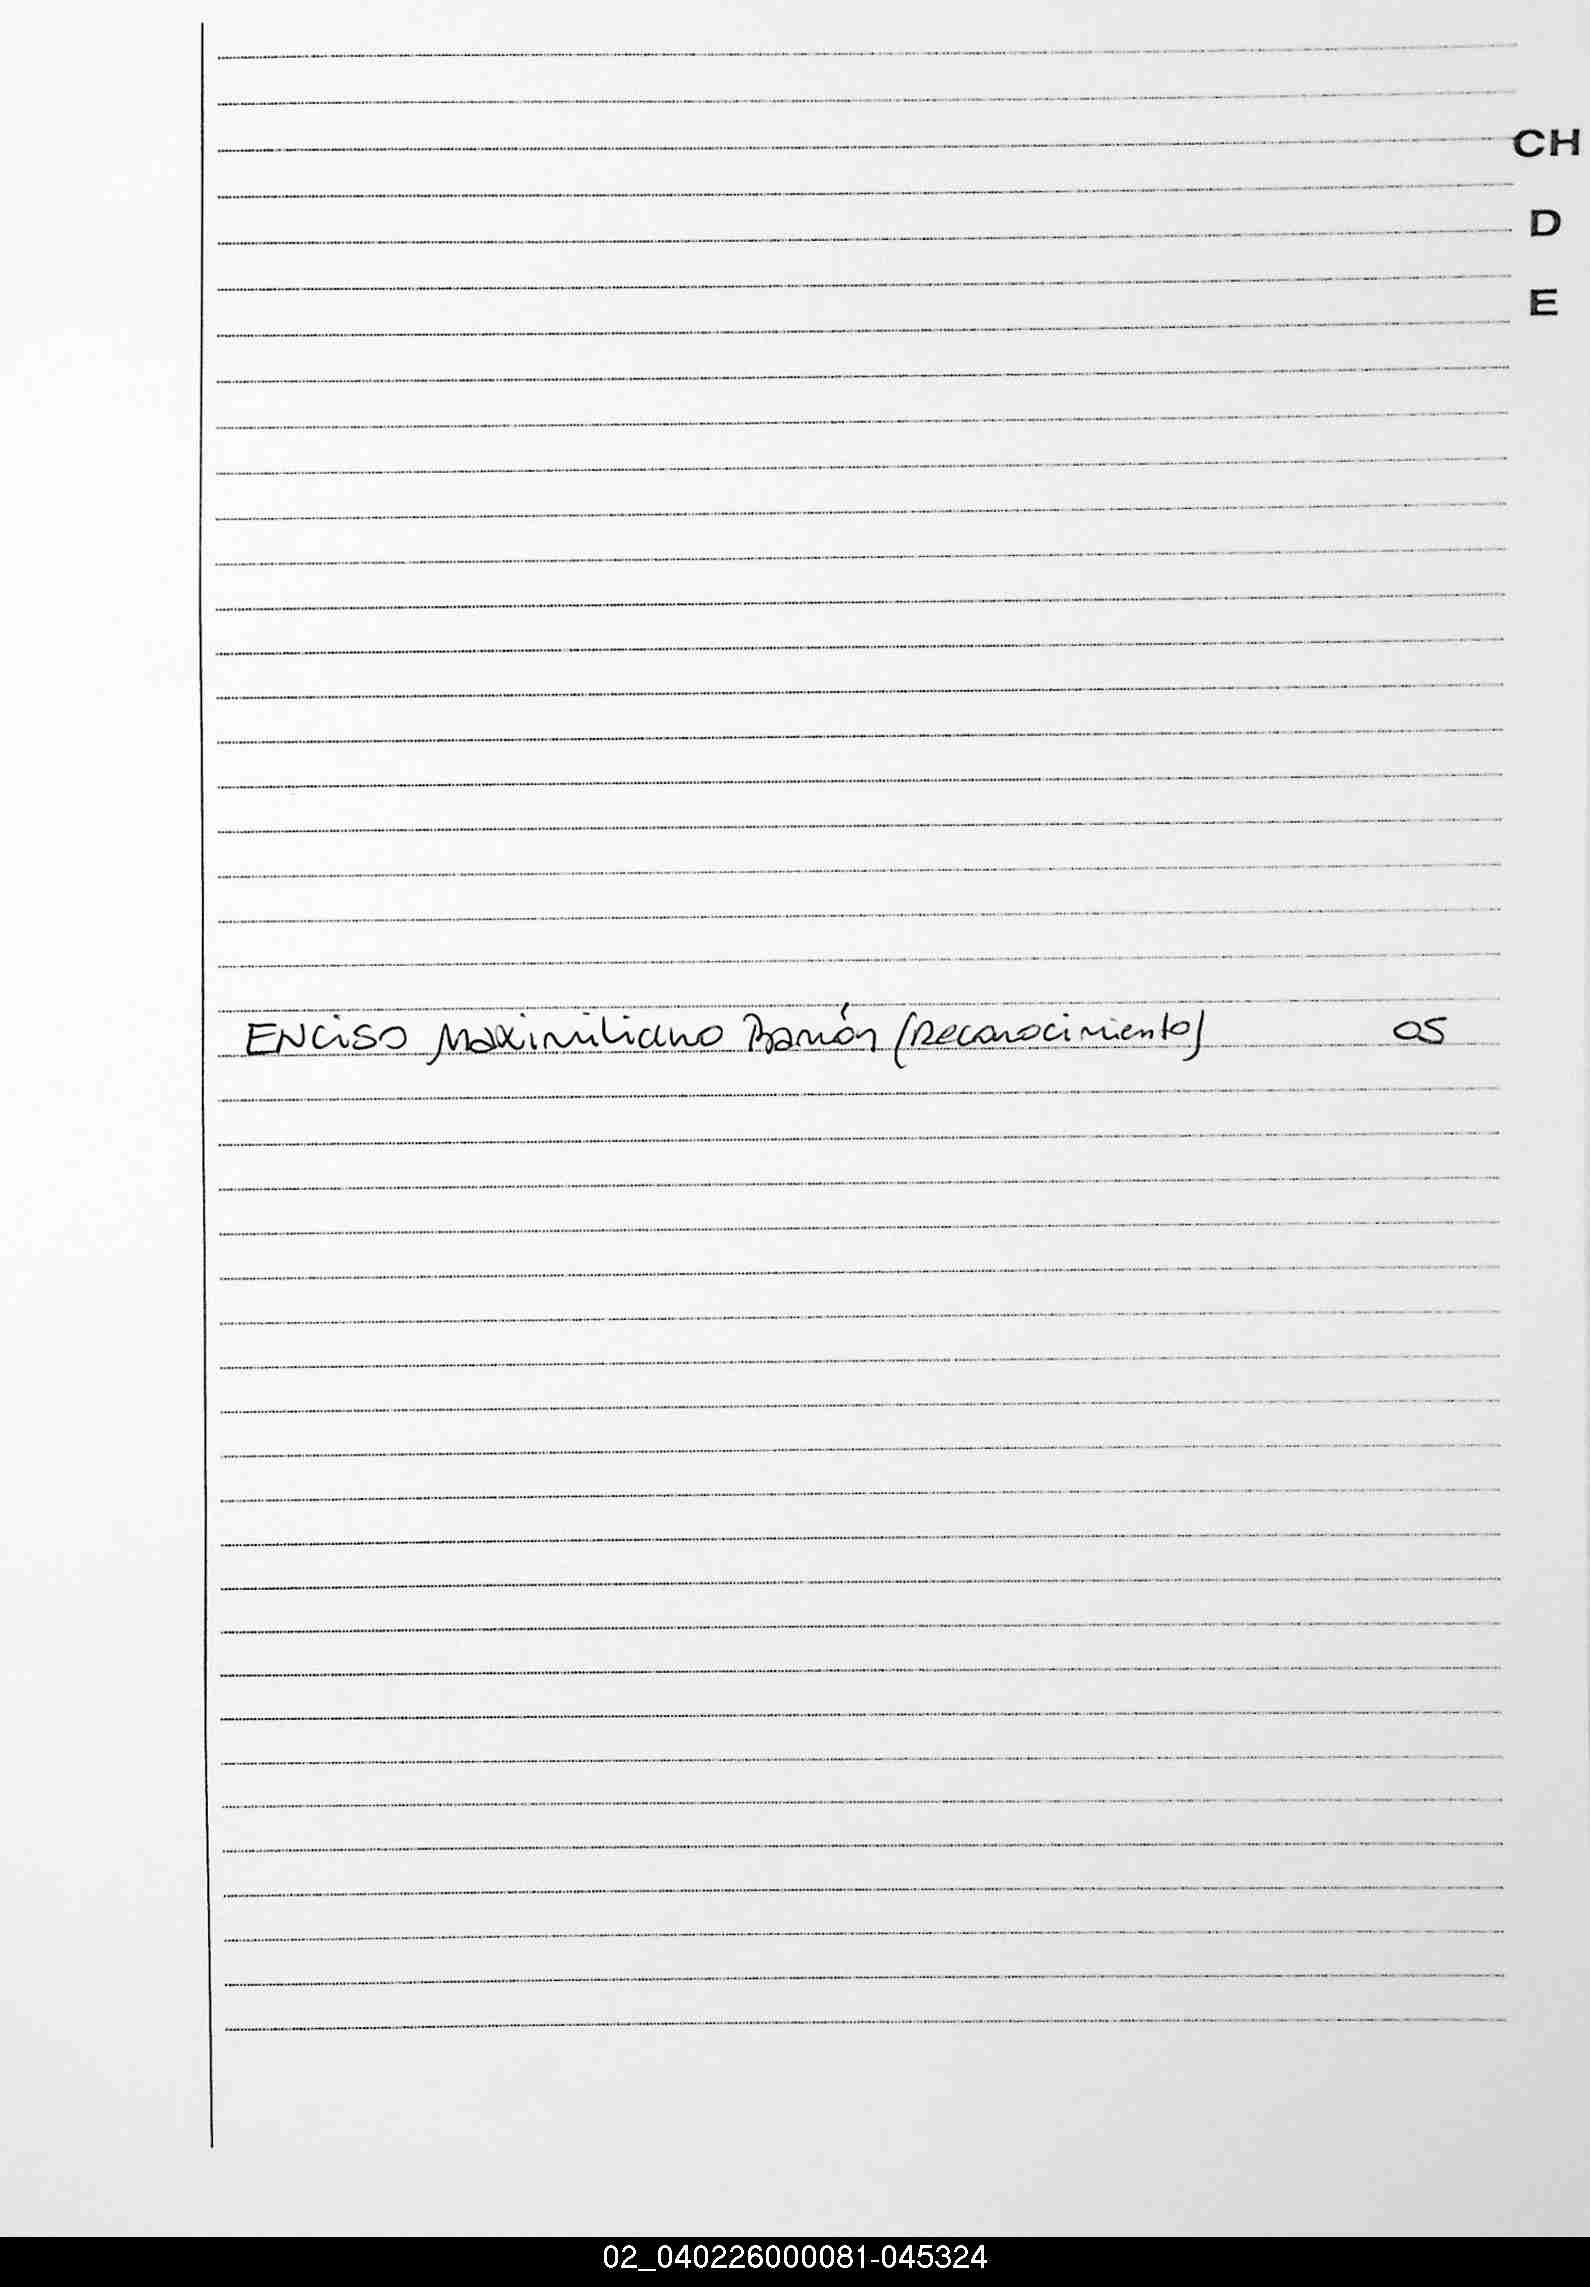 CH
D
E
ENCISO Maximiliano Ramón (Reconocimiento) 05
02_040226000081-045324